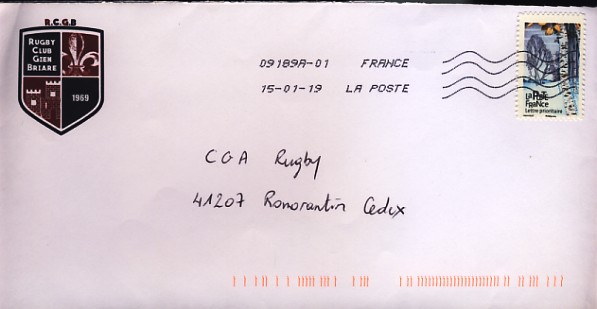 R.C.G.B
RUGBY
CLUB
GIEN
BRIARE
1969
09189A-01 FRANCE
15-01-19 LA POSTE
FRANCE
Lettre prioritaire
CGA Rugby
41207 Romorantin Cedex